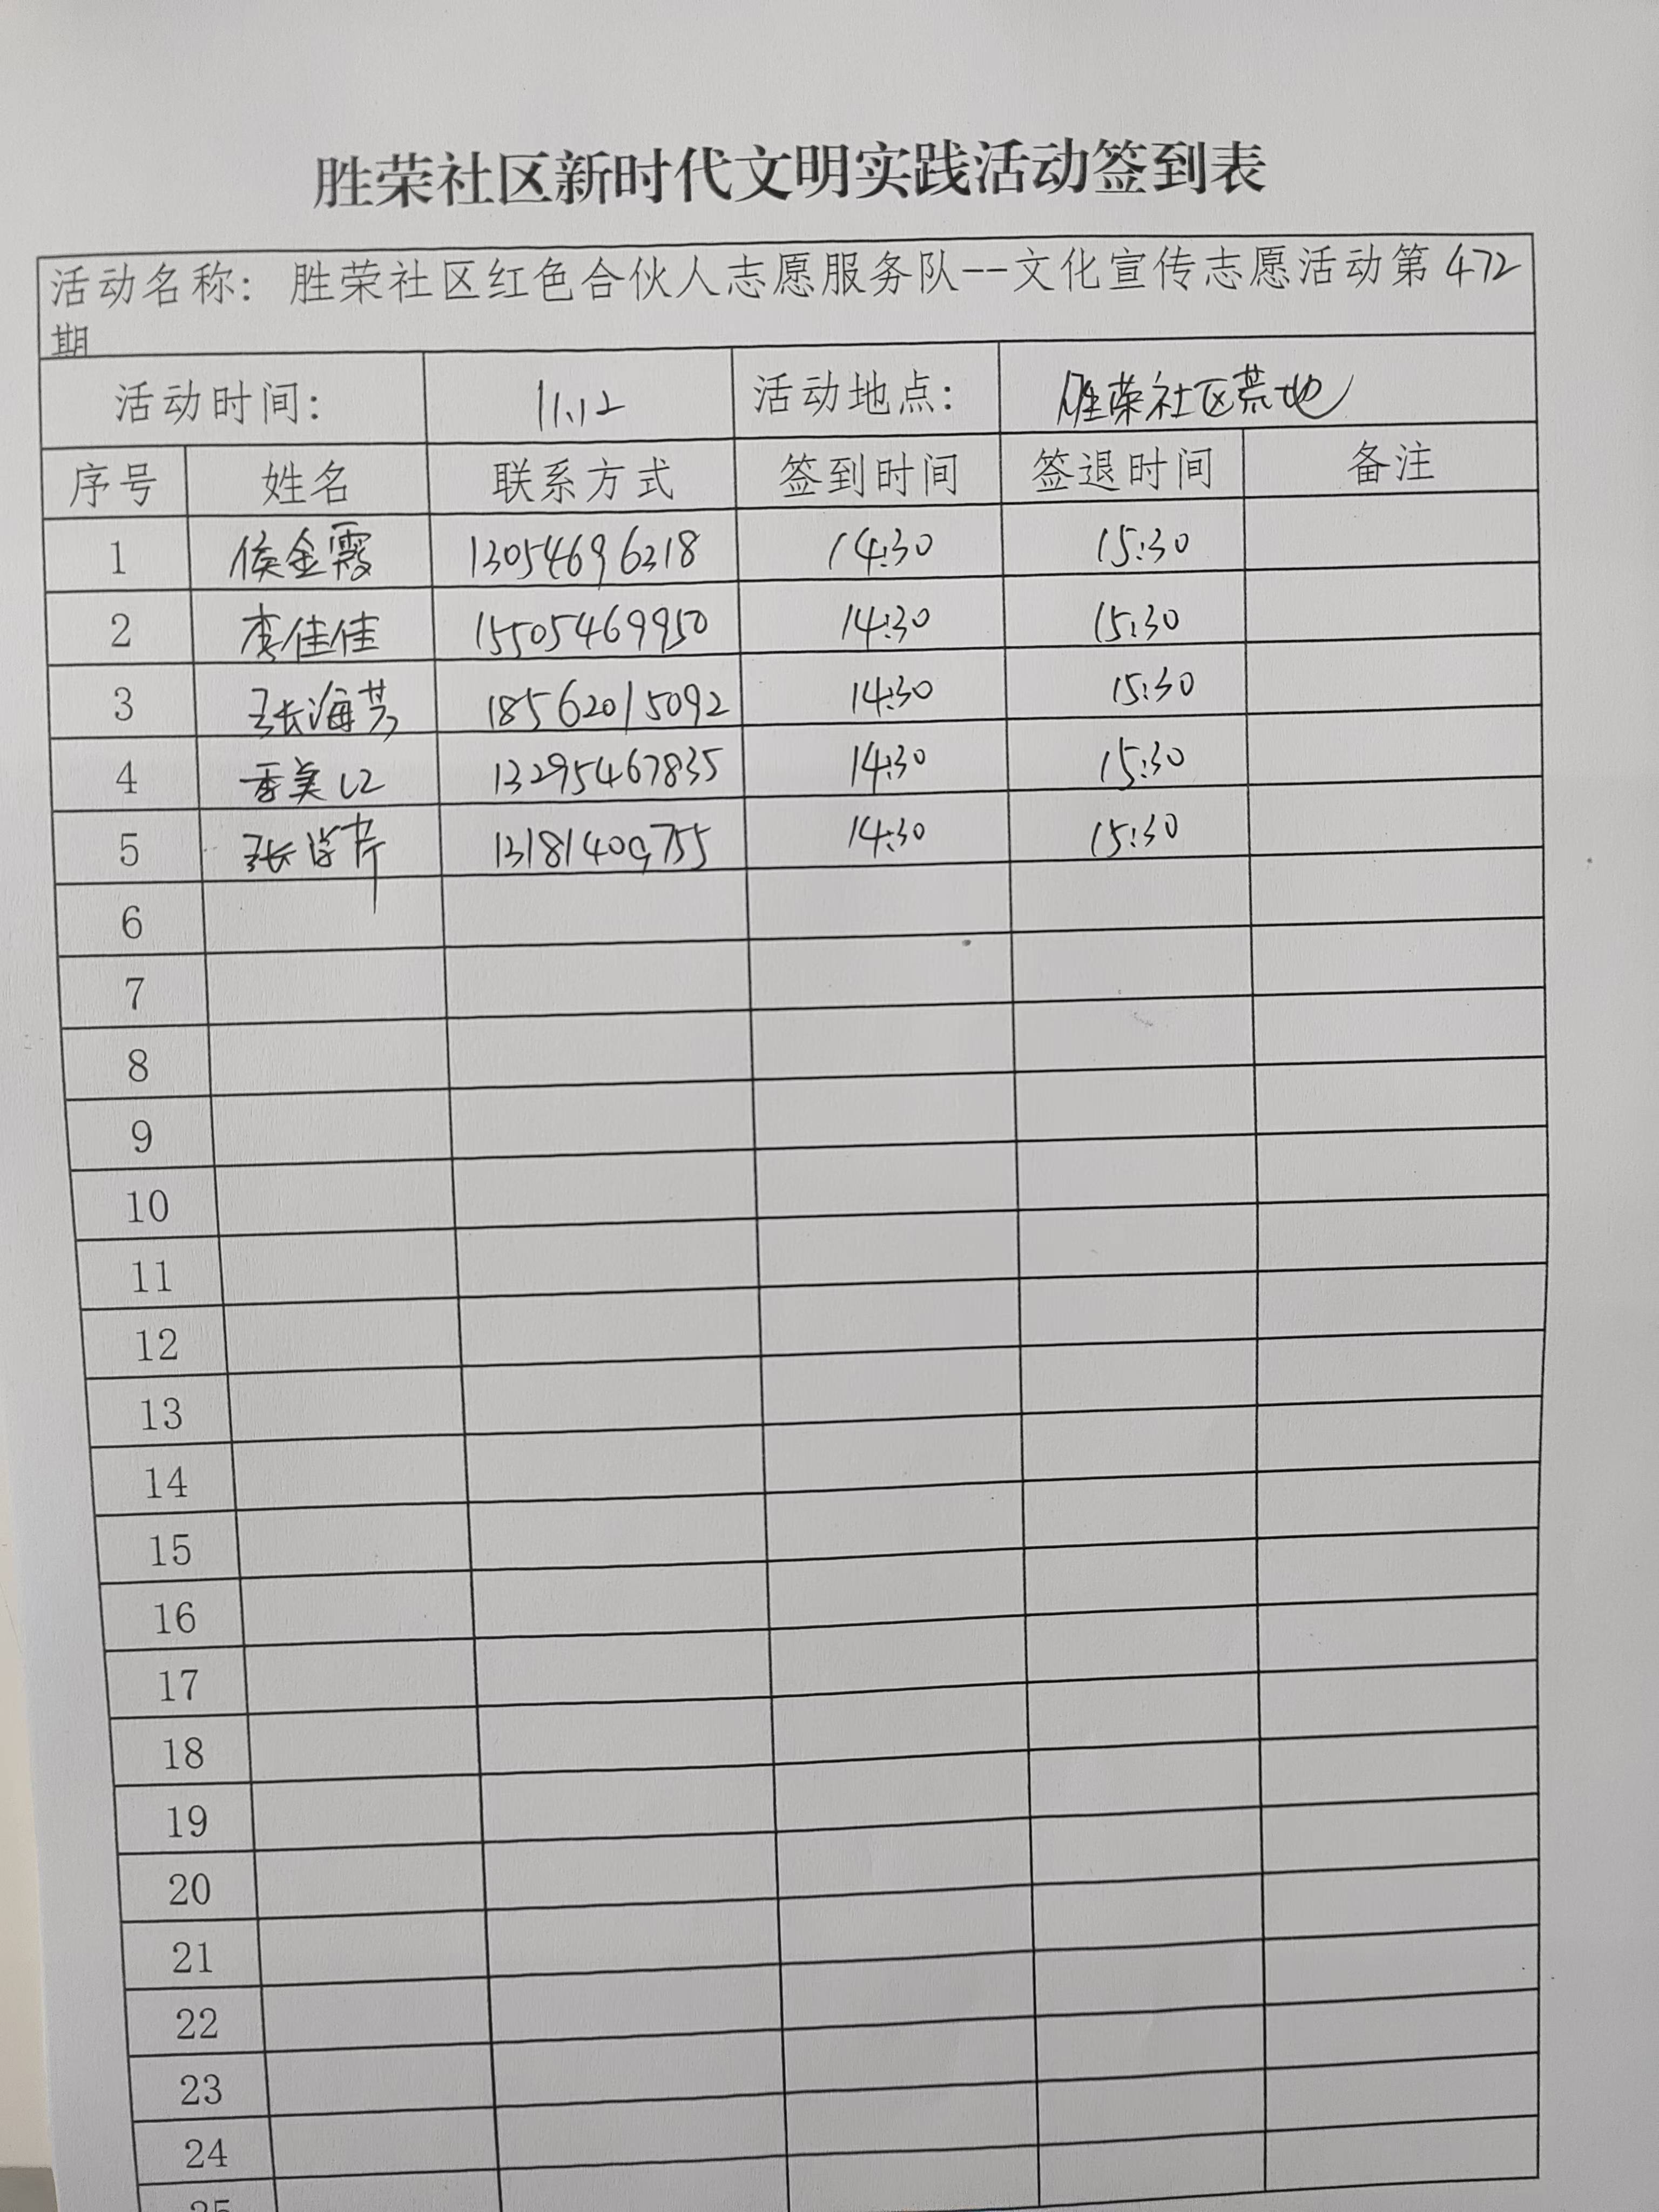 胜荣社区新时代文明实践活动签到表
活动名称：胜荣社区红色合伙人志愿服务队--文化宣传志愿活动第472
期
活动时间： 11.12 活动地点： 胜荣社区荒地
序号 姓名 联系方式 签到时间 签退时间 备注
1 侯金霞 13054696318 14:30 15:30
2 李佳佳 15505469950 14:30 15:30
3 张海芳 18562015092 14:30 15:30
4 季美红 13295467835 14:30 15:30
5 张学芹 13181409755 14:30 15:30
6
7
8
9
10
11
12
13
14
15
16
17
18
19
20
21
22
23
24
25